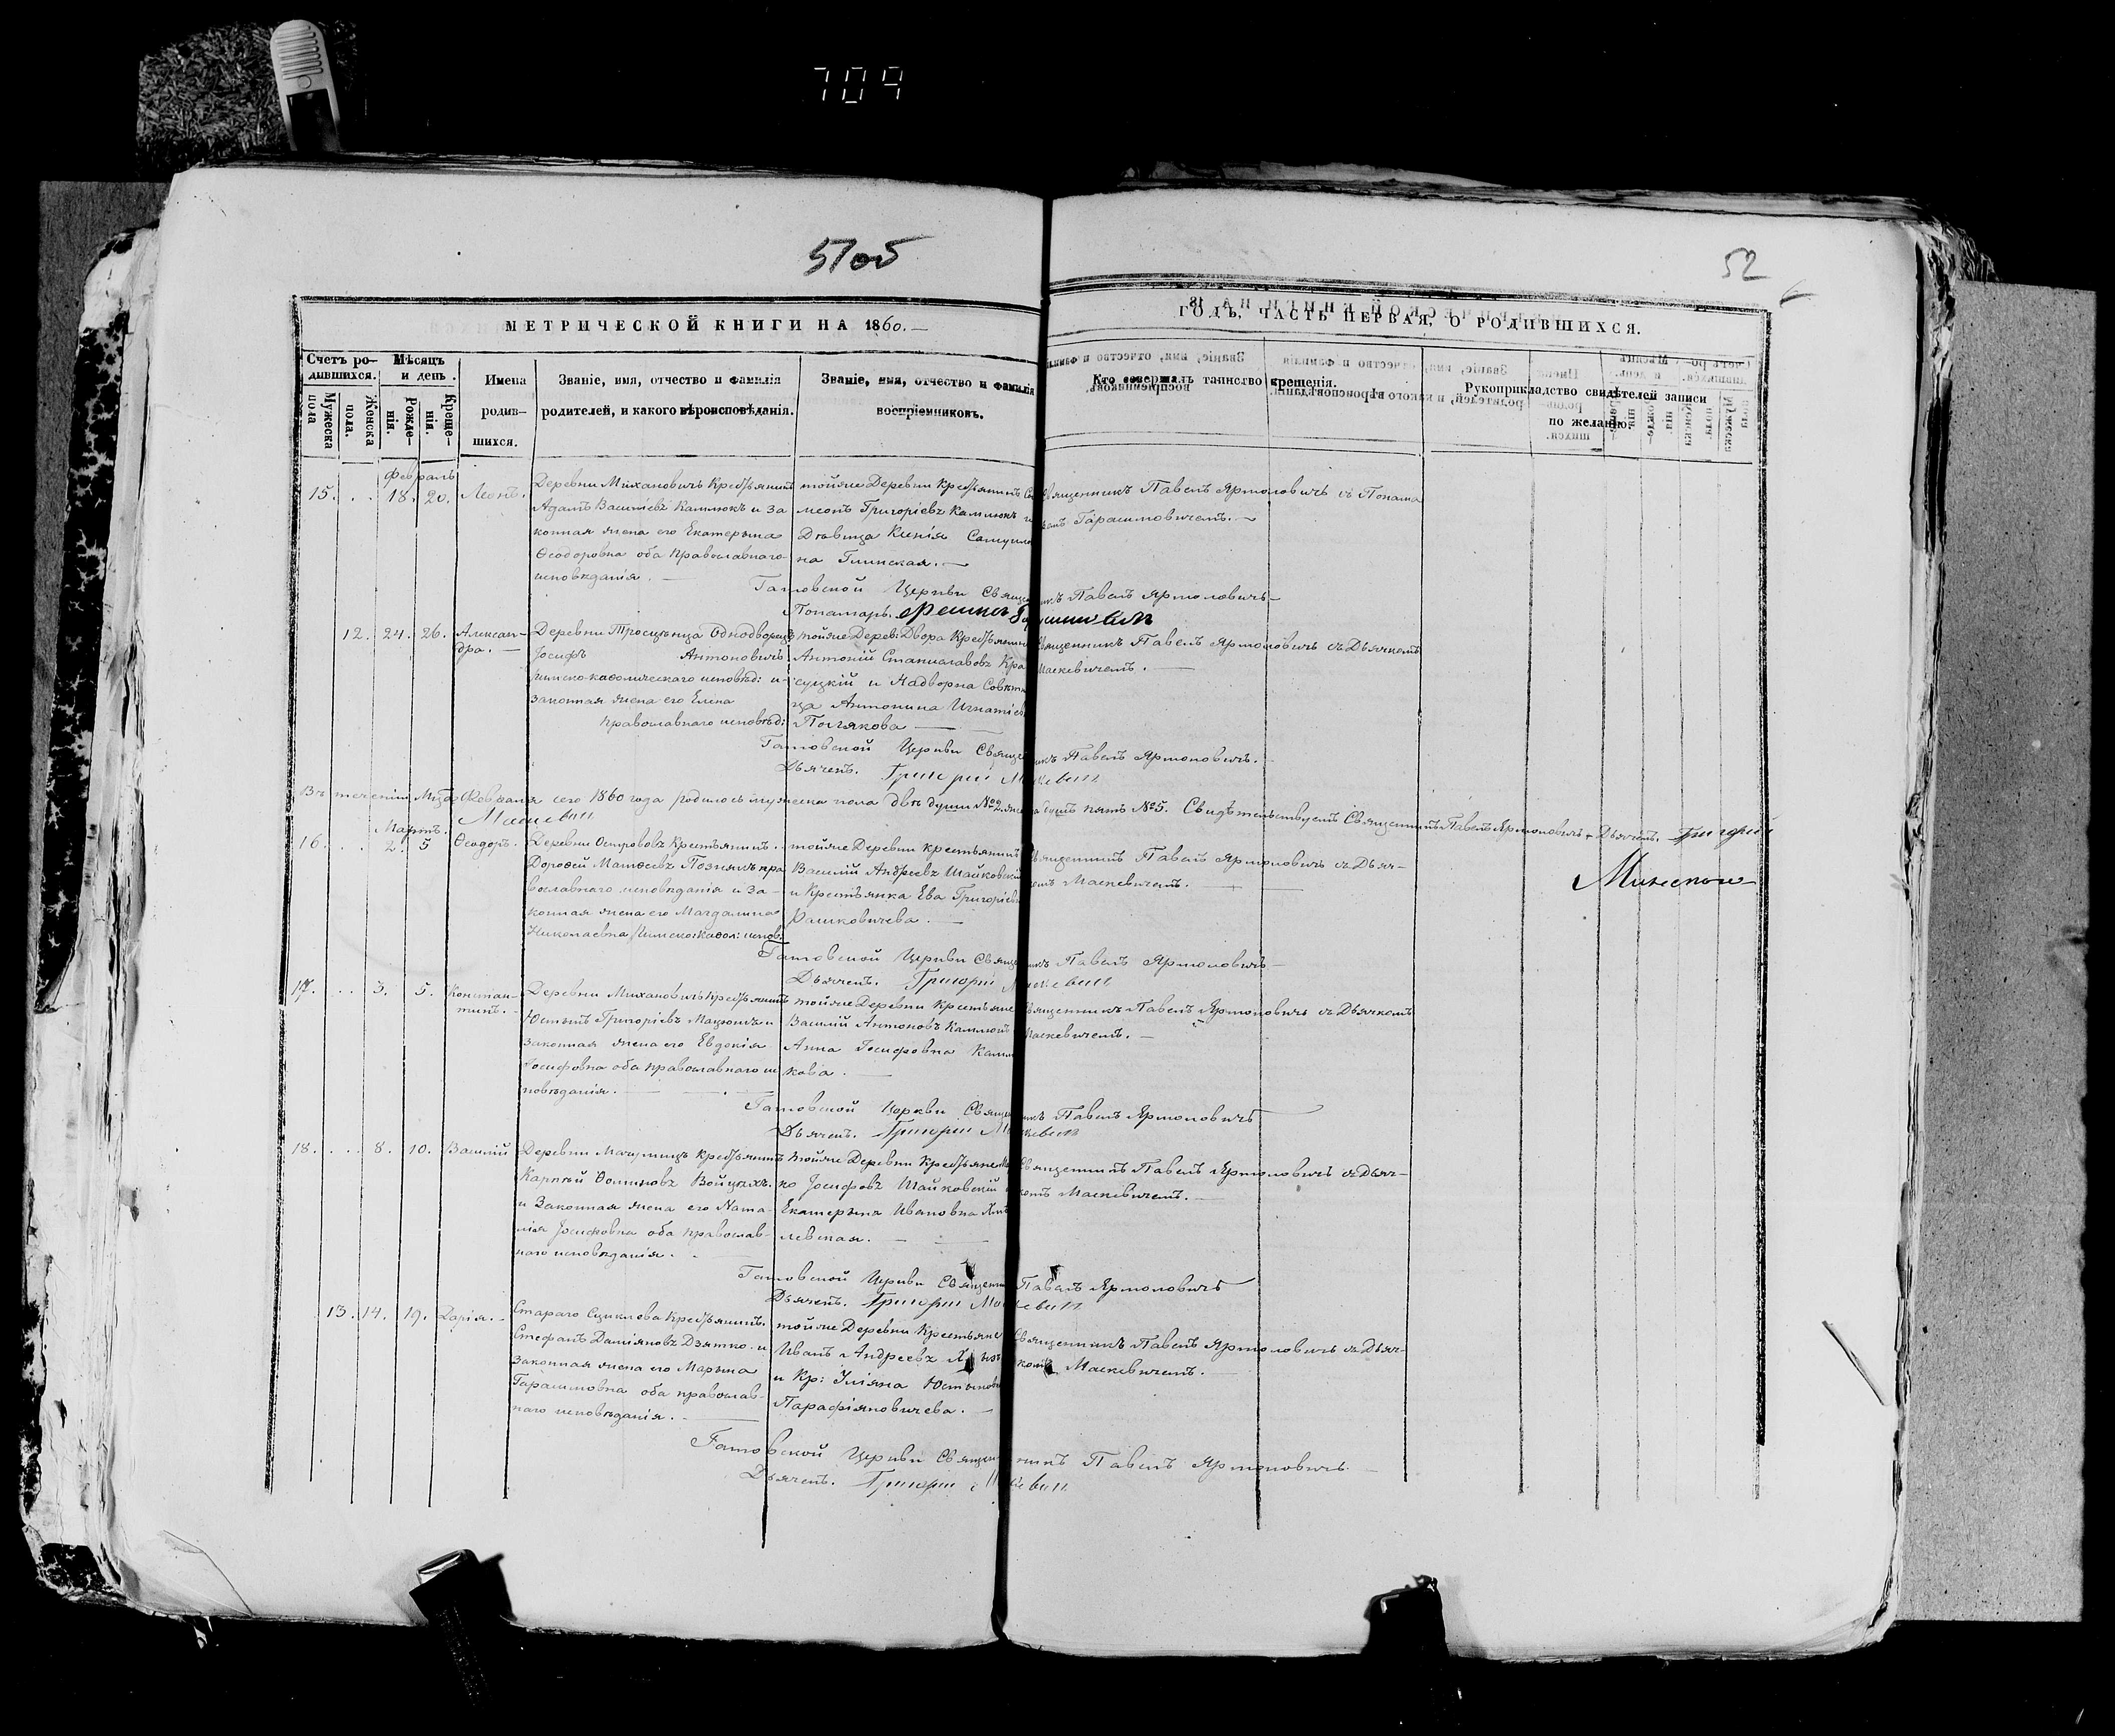 709
51об
52
МЕТРИЧЕСКОЙ КНИГИ НА 1860.—
ГОДЪ, ЧАСТЬ ПЕРВАЯ, О РОДИВШИХСЯ.
Счетъ ро-
дившихся.
Мужеска
пола
Женска
пола.
Мѣсяцъ
и день.
Рожде-
нія.
Креще-
нія.
Имена
родив-
шихся.
Званіе, имя, отчество и фамилія
родителей, и какого вѣроисповѣданія.
Званіе, имя, отчество и фамилія
воспріемниковъ.
Кто совершалъ таинство крещенія.
Рукоприкладство свидѣтелей записи
по желанію.
Февраль
15. 18. 20. Леонъ.
Деревни Михановичь Крестьянинъ
Адамъ Васильевъ Камлюкъ и за
конная жена его Екатерына
Ѳеодоровна оба православнаго
исповѣданія.
тойже Деревни Крестьянинъ
Григоріевъ Камлюкъ и
Дѣвица Ксенія
на Глинская.—
Священникъ Павелъ Ярмоловичь съ Понама
Гарасимовичемъ.—
Гатовской Церкви Священникъ Павелъ Ярмоловичь
Понамарь.
12. 24. 26. Алексан-
дра.—
Деревни Тросценца Однодворецъ
Іосифъ Антоновичь
Римскокаѳолическаго исповѣд: и
законная жена его Елена
православнаго исповѣд:
тойже Дерев: Двора Крестьянинъ
Антоній Станиславовъ Кра
суцкій и Надворна Совѣтни
ца Антонина Игнатіев
Полякова
Священникъ Павелъ Ярмоловичь съ Дьячкомъ
Маскевичемъ.—
Гатовской Церкви Священникъ Павелъ Ярмоловичь.
Дьячекъ. Григорій Маскевичь
Въ теченіи Мца Февраля сего 1860 года родилось мужеска пола двѣ души №2. женска душъ пять №5. Свидѣтельствуемъ Священникъ Павелъ Ярмоловичь Дьячекъ. Григорій
Маскевичь
Мартъ.
16. 2. 5 Ѳеодоръ.
Деревни Острововъ Крестьянинъ
Дороѳей Матѳеевъ Познякъ пра
вославнаго исповѣданія и за-
конная жена его Магдалина
Николаевна Римско: каѳол: испов:
тойже Деревни крестьянинъ
Василій Андреевъ Шайковскій
и Крестьянка Ева Григоріев
Рашковичева.
Священникъ Павелъ Ярмоловичь съ Дьяч-
комъ Маскевичемъ.
Гатовской Церкви Священникъ Павелъ Ярмоловичь
Дьячекъ. Григорій Маскевичь
17. 3. 5. Констан-
тинъ.
Деревни Михановичь Крестьянинъ
Юстынъ Григоріевъ Мацюкъ и
законная жена его Евдокія
Іосифовна оба православнаго ис
повѣданія.
тойже Деревни Крестьяне
Василій Антоновъ Камлюкъ
Анна Іосифовна Камлю
кова.
Священникъ Павелъ Ярмоловичь съ Дьячкомъ
Маскевичемъ.—
Гатовской Церкви Священникъ Павелъ Ярмоловичь
Дьячекъ. Григорій Маскевичь
18. 8. 10. Василій
Деревни Мачулищъ Крестьянинъ
Карпѣй Ѳоминовъ
и Законная жена его Ната-
лія Іосифовна оба православ-
наго исповѣданія.
тойже Деревни Крестьяне
Іосифовъ Шайковскій
Екатерына Ивановна
левская.
Священникъ Павелъ Ярмоловичь съ Дьяч-
комъ Маскевичемъ.—
Гатовской Церкви Священникъ Павелъ Ярмоловичь
Дьячекъ. Григорій Маскевичь
13. 14. 19. Дарія.
Стараго Сцыклева Крестьянинъ
Стефанъ Даміяновъ Дзятко и
законная жена его Марына
Гарасимовна оба православ-
наго исповѣданія.
тойже Деревни Крестьяне
Иванъ Андреевъ
и Кр: Уліяна Юстынов
Парафіяновичева.
Священникъ Павелъ Ярмоловичь съ Дьяч-
комъ Маскевичемъ.
Гатовской Церкви Священникъ Павелъ Ярмоловичь
Дьячекъ. Григорій Маскевичь